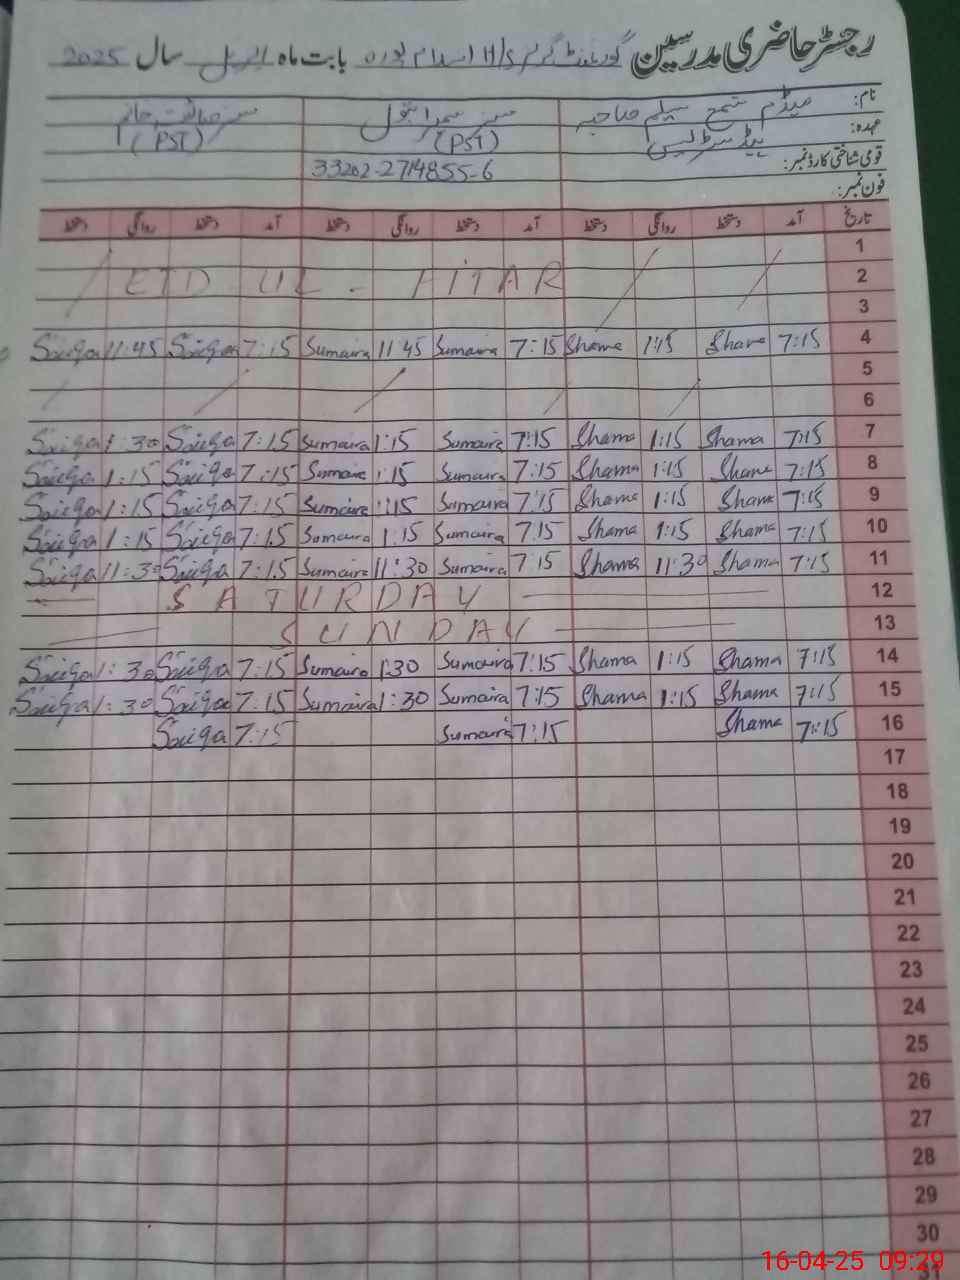 رجسٹر حاضری مدرسین گورنمنٹ گرلز H/S اسلام پورہ بابت ماہ اپریل سال 2025
نام: میڈم شمع سلیم صاحبہ مس سمیرا بتول مس صائقہ خانم
عہدہ: ہیڈ مسٹریس (PST) (PST)
قومی شناختی کارڈ نمبر: 33202-2714855-6
فون نمبر:
تاریخ آمد دستخط روانگی دستخط آمد دستخط روانگی دستخط آمد دستخط روانگی دستخط
1
EID UL - FITAR 2
3
Saiqa 11:45 Saiqa 7:15 Sumaira 11 45 Sumaira 7:15 Shama 1:15 Shama 7:15 4
5
6
Saiqa 1:30 Saiqa 7:15 Sumaira 1:15 Sumaira 7:15 Shama 1:15 Shama 7:15 7
Saiqa 1:15 Saiqa 7:15 Sumaira 1:15 Sumaira 7:15 Shama 1:15 Shama 7:15 8
Saiqa 1:15 Saiqa 7:15 Sumaira 1:15 Sumaira 7:15 Shama 1:15 Shama 7:15 9
Saiqa 1:15 Saiqa 7:15 Sumaira 1:15 Sumaira 7:15 Shama 1:15 Shama 7:15 10
Saiqa 11:30 Saiqa 7:15 Sumaira 11:30 Sumaira 7:15 Shama 11:30 Shama 7:15 11
SATURDAY 12
SUNDAY 13
Saiqa 1:30 Saiqa 7:15 Sumaira 1:30 Sumaira 7:15 Shama 1:15 Shama 7:15 14
Saiqa 1:30 Saiqa 7:15 Sumaira 1:30 Sumaira 7:15 Shama 1:15 Shama 7:15 15
Saiqa 7:15 Sumaira 7:15 Shama 7:15 16
17
18
19
20
21
22
23
24
25
26
27
28
29
30
31
16-04-25 09:29